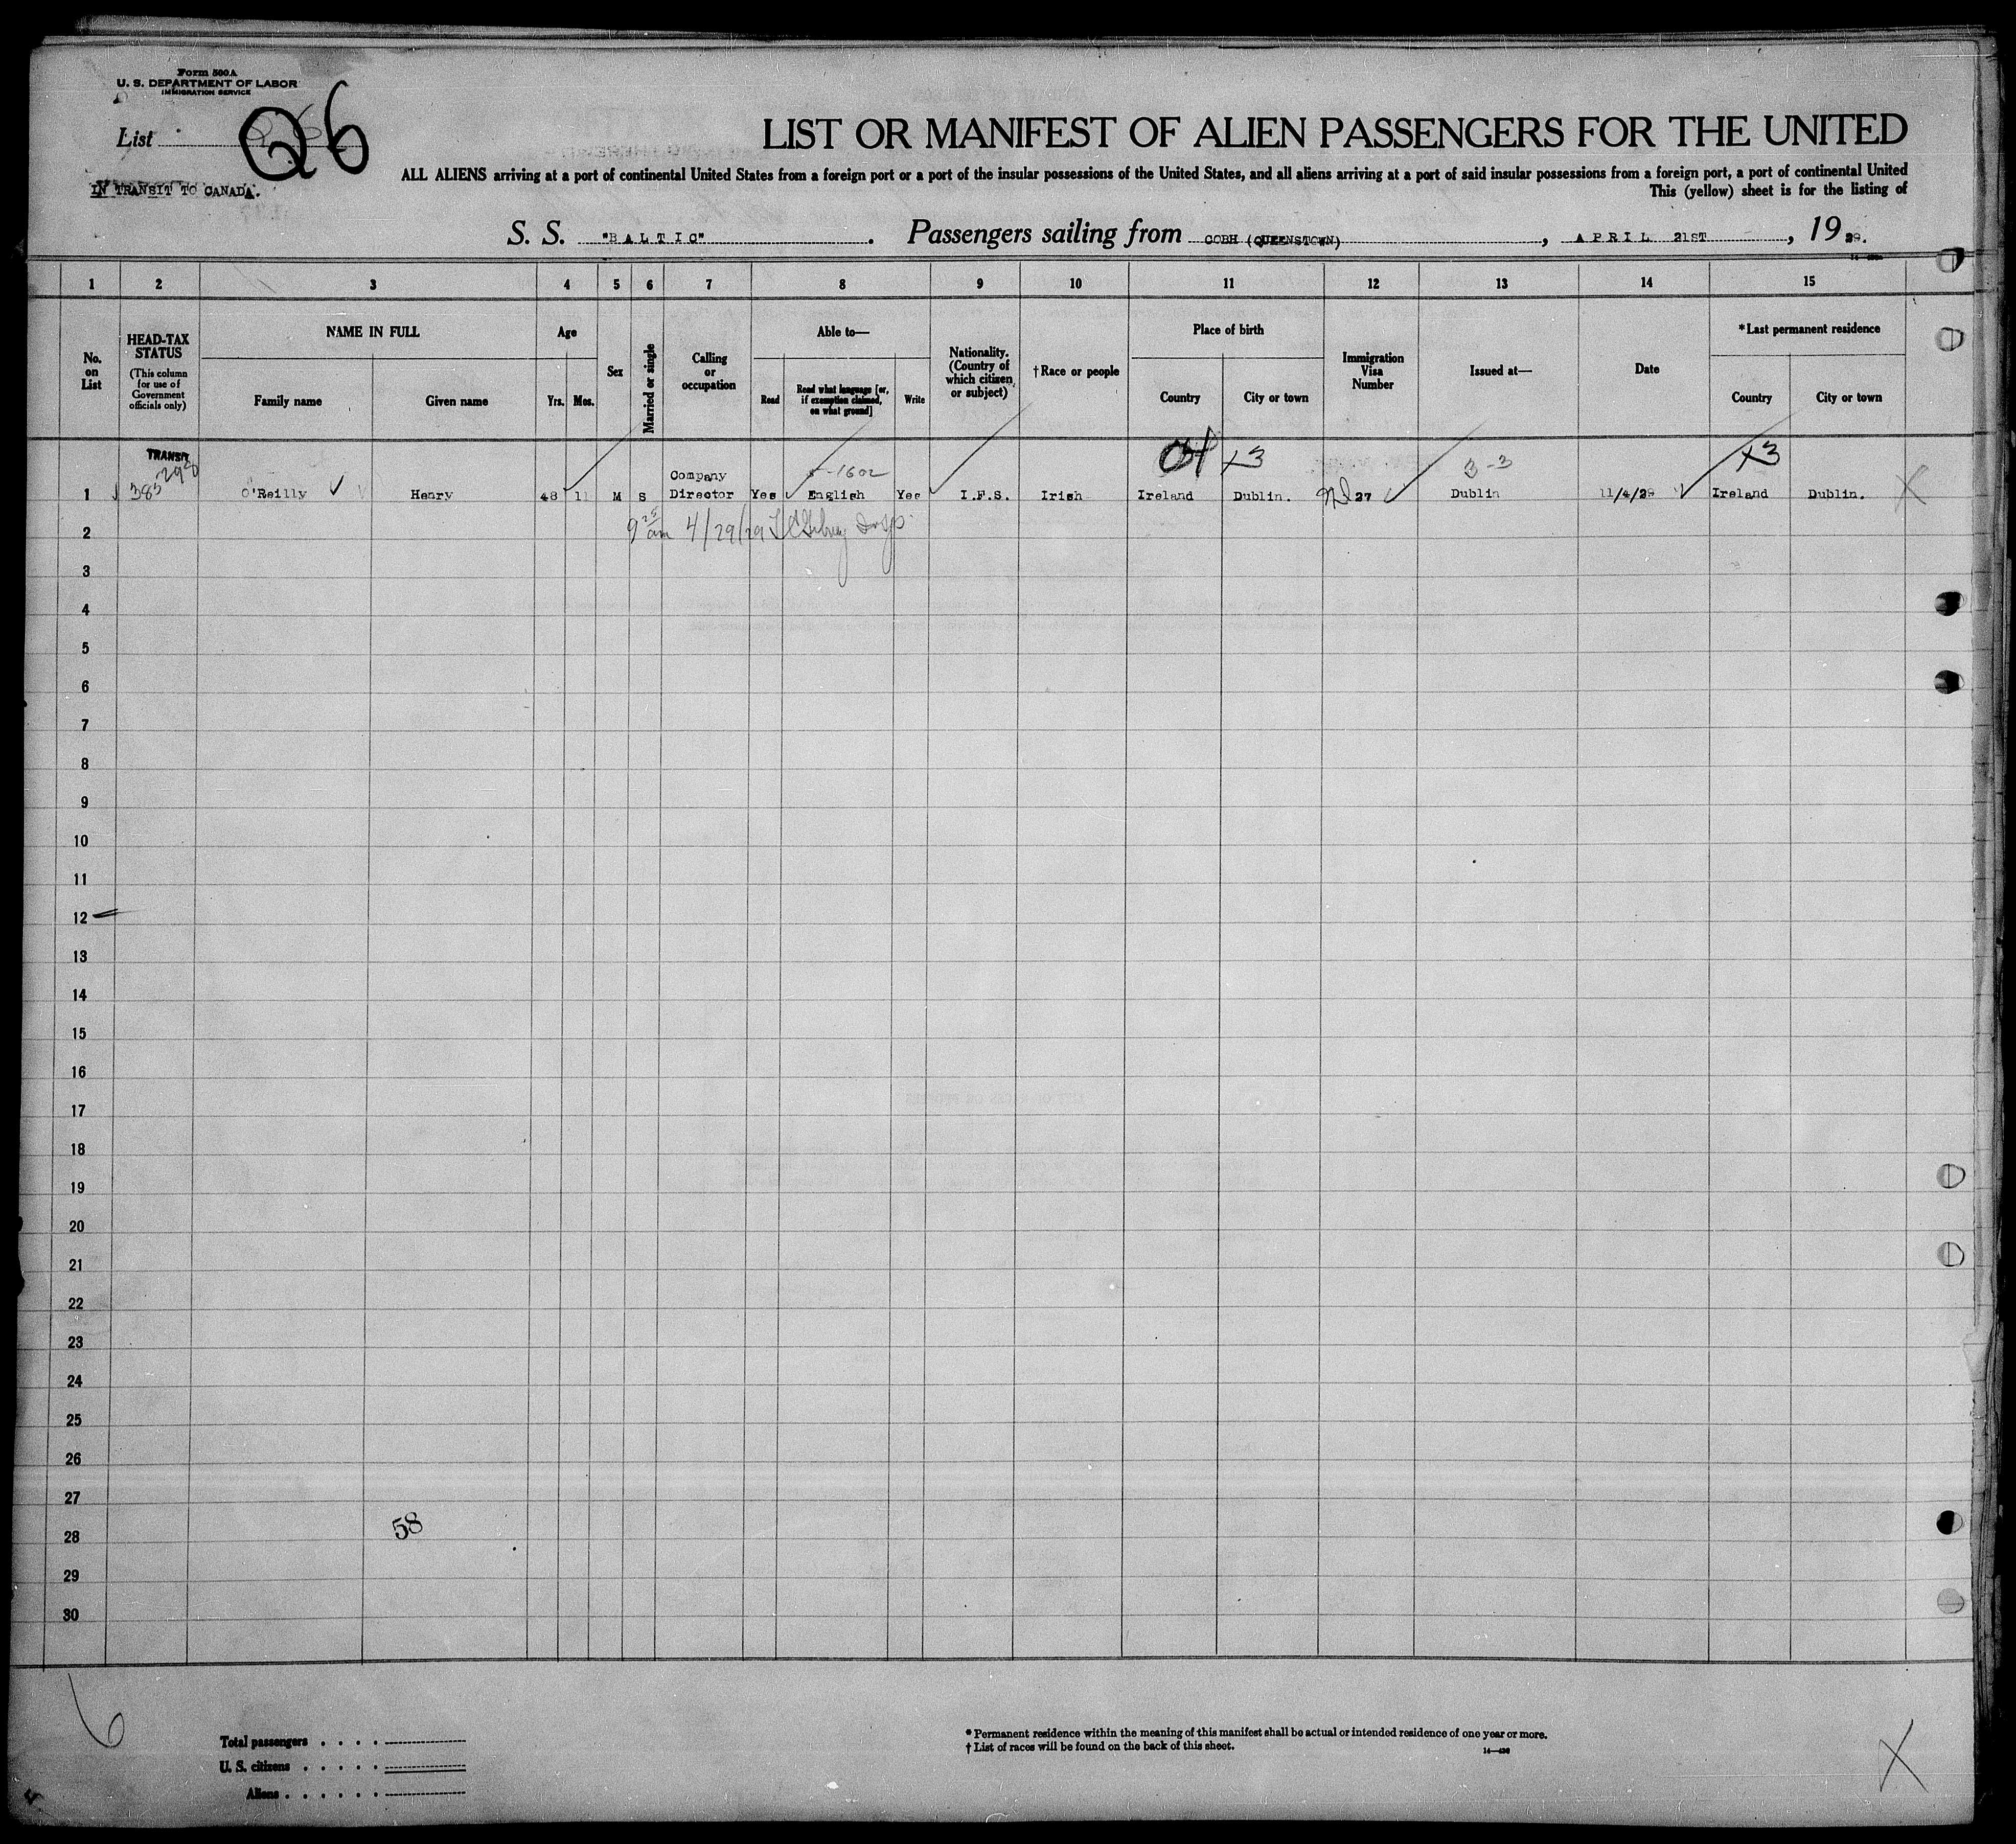 Form 500A
U. S. DEPARTMENT OF LABOR
IMMIGRATION SERVICE
List
Q6
IN TRANSIT TO CANADA.
LIST OR MANIFEST OF ALIEN PASSENGERS FOR THE UNITED
ALL ALIENS arriving at a port of continental United States from a foreign port or a port of the insular possessions of the United States, and all aliens arriving at a port of said insular possessions from a foreign port, a port of continental United
This (yellow) sheet is for the listing of
S. S. "BALTIC". Passengers sailing from COBH (QUEENSTOWN), APRIL 21ST, 1929.
1 2 3 4 5 6 7 8 9 10 11 12 13 14 15
No. on List
HEAD-TAX STATUS
(This column for use of Government officials only)
NAME IN FULL
Family name
Given name
Age
Yrs. Mos.
Sex
Married or single
Calling or occupation
Able to—
Read
Read what language [or, if exemption claimed, on what ground]
Write
Nationality. (Country of which citizen or subject)
†Race or people
Place of birth
Country
City or town
Immigration Visa Number
Issued at—
Date
*Last permanent residence
Country
City or town
TRANSIT
1 O'Reilly Henry 48 11 M S Company Director Yes English Yes I.F.S. Irish Ireland Dublin. 27 Dublin 11/4/29 Ireland Dublin.
-1602
x3
3-3
x3
9 25 am 4/29/29
2
3
4
5
6
7
8
9
10
11
12
13
14
15
16
17
18
19
20
21
22
23
24
25
26
27
28
29
30
58
6
Total passengers . . . .
U. S. citizens . . . . .
Aliens . . . . . .
* Permanent residence within the meaning of this manifest shall be actual or intended residence of one year or more.
† List of races will be found on the back of this sheet.
X